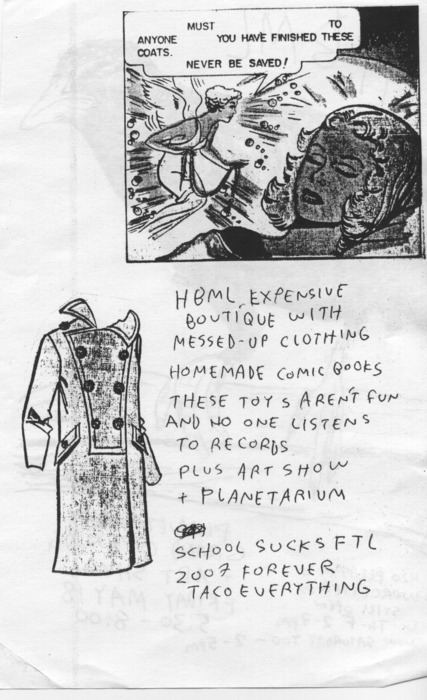 MUST TO
ANYONE YOU HAVE FINISHED THESE
COATS.
NEVER BE SAVED!
HBML EXPENSIVE
BOUTIQUE WITH
MESSED-UP CLOTHING
HOMEMADE COMIC BOOKS
THESE TOYS AREN'T FUN
AND NO ONE LISTENS
TO RECORDS
PLUS ART SHOW
+ PLANETARIUM
SCHOOL SUCKS FTL
2007 FOREVER
TACO EVERYTHING
FRIDAY MAY 18
5:30 - 8:00